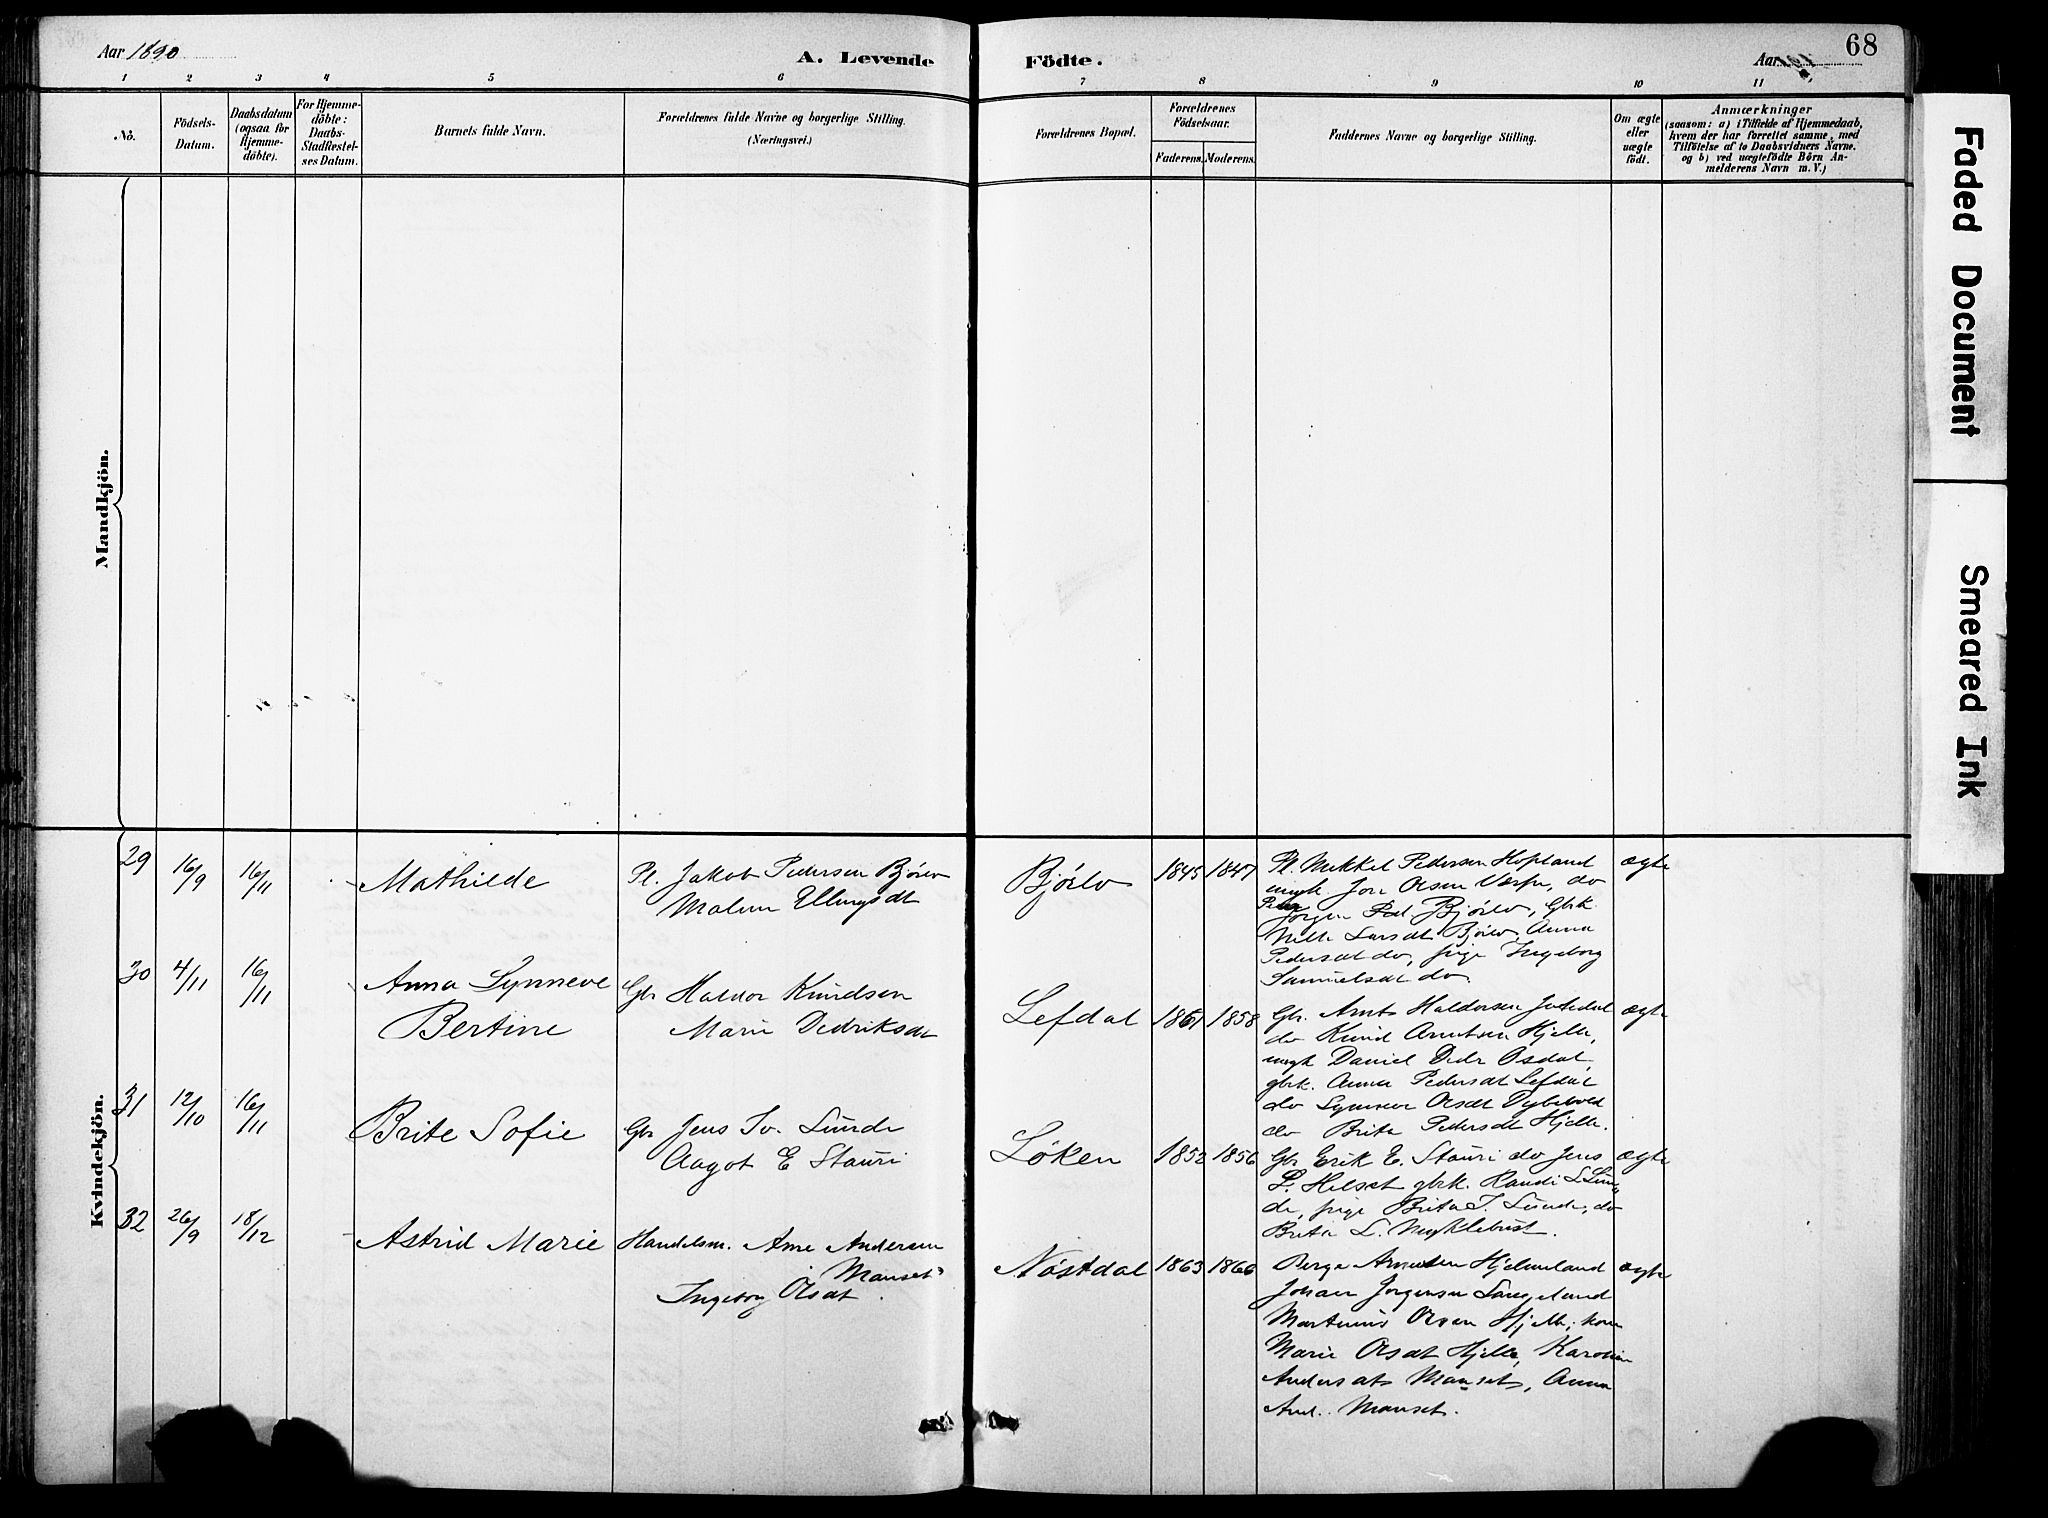 Aar 1890
A. Levende
Födte.
Aar
68
1 2 3 4 5 6 7 8 9 10 11
No.
Födsels-
Datum.
Daabsdatum
(ogsaa for
Hjemme-
döbte).
For Hjemme-
döbte:
Daabs-
Stadfæstel-
ses Datum.
Barnets fulde Navn.
Forældrenes fulde Navne og borgerlige Stilling.
(Næringsvei.)
Forældrenes Bopæl.
Forældrenes
Födselsaar.
Faderens. Moderens.
Faddernes Navne og borgerlige Stilling.
Om ægte
eller
uægte
födt.
Anmærkninger
(saasom: a) i Tilfælde af Hjemmedaab,
hvem der har forrettet samme, med
Tilföielse af to Daabsvidners Navne.
og b) ved uægtefödte Börn An-
melderens Navn m. V.)
Mandkjön.
Kvindekjön.
29 16/9 16/11 Mathilde
Pl. Jakob Pedersen Bjørlo
Malene Ellingsdt
Bjørlo 1845 1847
Pl. Mikkel Pedersen Hopland
ungk. Olsen do
Jørgen Ped. Bjørlo, Gbrk.
Larsdt Bjørlo, Anna
Pedersdt do, pige Ingeborg
Samuelsdt do.
ægte
30 4/11 16/11 Anna Synneve
Bertine
Gbr Haldor Knudsen
Marie Dedriksdt
Lefdal 1861 1858
Gbr. Haldorsen
do Knud Arntsen Hjelle,
ungk Daniel Osdal,
gbrk. Anna Pedersdt Lefdal
do Synneve Olsdt
do Brita Pedersdt Hjelle.
ægte
31 12/10 16/11 Brite Sofie
Gbr Jens Lunde
Aagot E Stauri
Løken 1852 1856
Gbr Erik E. Stauri do Jens
P. Helset gbrk. Randi
de, pige Brita J. Lunde, do
Brita L. Myklebust.
ægte
32 26/9 18/12 Astrid Marie
Handelsm. Arne Andersen
Manset
Ingeborg Olsdt.
Nøstdal 1863 1866
Berge Hjelmeland
Johan Jørgensen Langeland
Martinus Olsen Hjelle, kone
Marie Olsdt Hjelle, Karoline
Andersdt Manset, Anna
And. Manset.
ægte
Faded Document
Smeared Ink